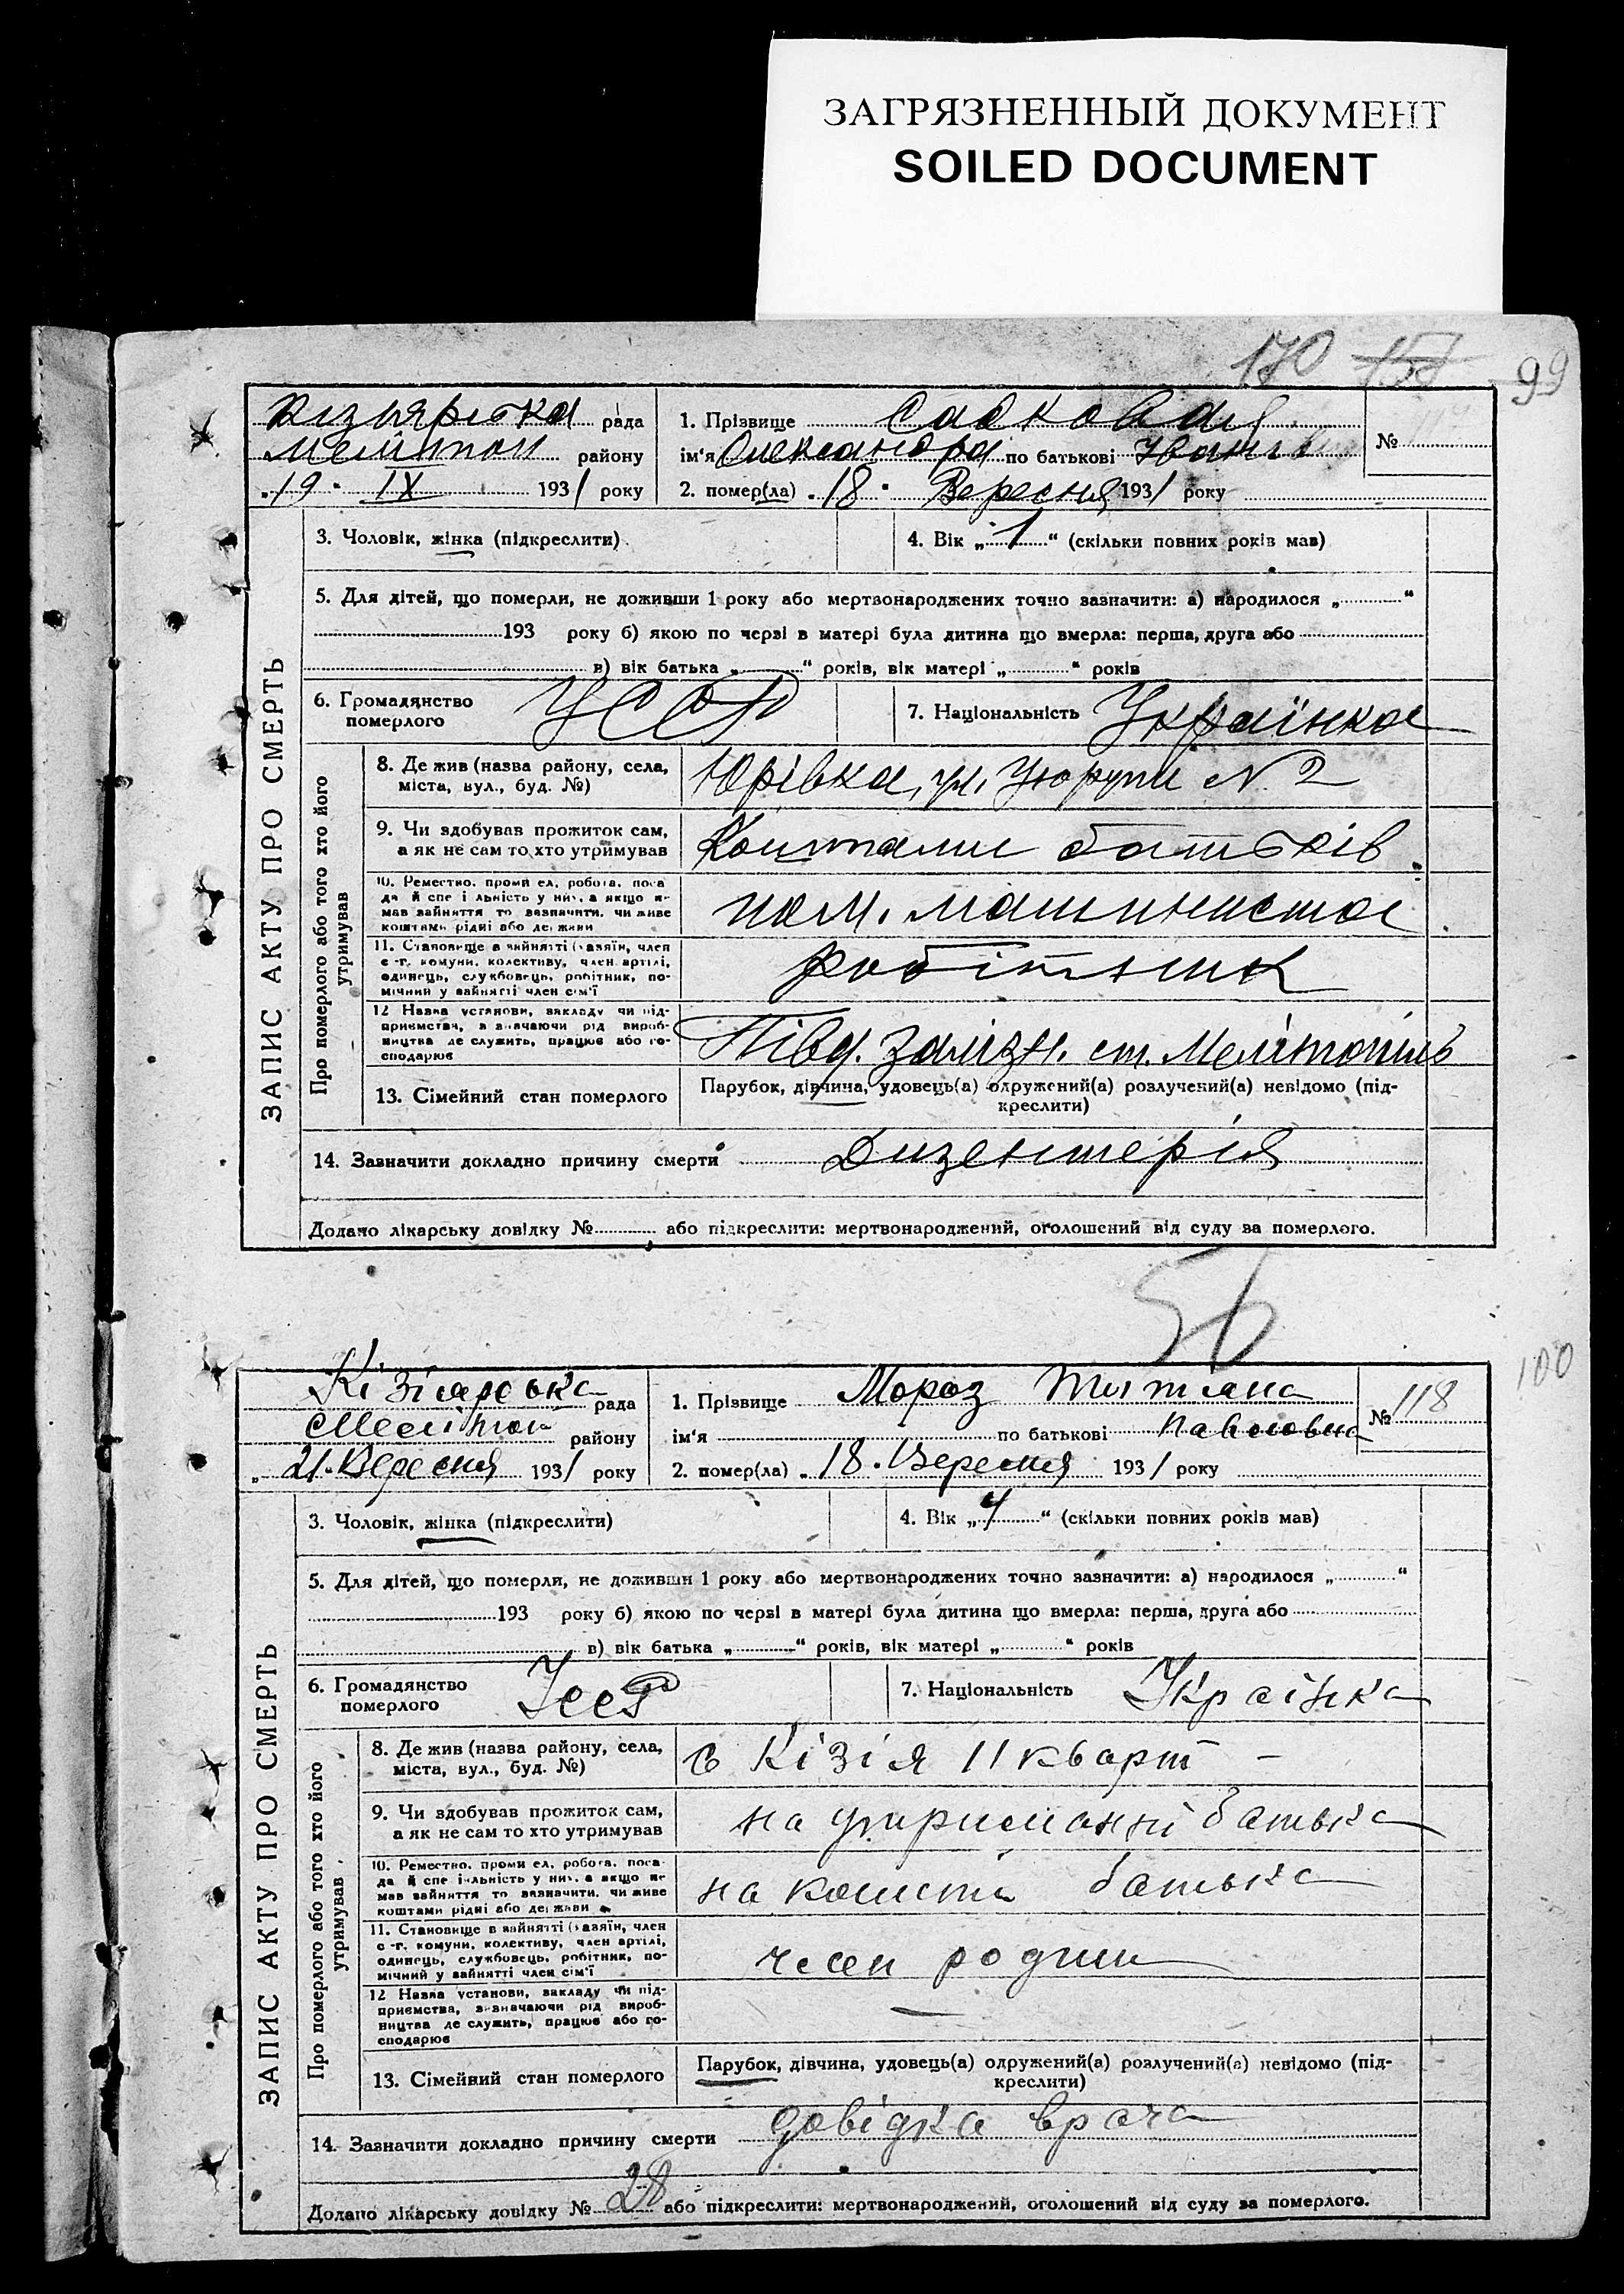 ЗАГРЯЗНЕННЫЙ ДОКУМЕНТ
SOILED DOCUMENT
170 99
рада
Меліток району
„19“ IX 1931 року
1. Прізвище
ім'я Олександра по батькові
№
2. помер(ла) „18“ Вересня 1931 року
ЗАПИС АКТУ ПРО СМЕРТЬ
3. Чоловік, жінка (підкреслити)
4. Вік „1“ (скільки повних років мав)
5. Для дітей, що померли, не доживши 1 року або мертвонароджених точно зазначити: а) народилося „ “
193 року б) якою по черзі в матері була дитина що вмерла: перша, друга або
в) вік батька „ “ років, вік матері „ “ років
6. Громадянство померлого УССР
7. Національність Українка
Про померлого або того хто його утримував
8. Де жив (назва району, села,
міста, вул., буд. №)
Юрівка, ул. Цюрупи № 2
9. Чи здобував прожиток сам,
а як не сам то хто утримував
Коштами батьків
10. Ремество, промисел, робота, поса
да й спеціальність у них, а якщо не
мав зайняття то зазначити, чи живе
коштами рідні або держави
пом. машиниста
11. Становище в зайнятті (хазяїн, член
с.-г. комуни, колективу, член артілі,
одинець, службовець, робітник, по-
мічний у зайнятті член сім'ї
робітник
12 Назва установи, закладу чи під-
приємства, зазначаючи рід вироб-
ництва де служить, працює або го-
сподарює
Півд. залізн. ст. Мелітопіль
13. Сімейний стан померлого
Парубок, дівчина, удовець(а) одружений(а) розлучений(а) невідомо (під-
креслити)
14. Зазначити докладно причину смерти Дизентерія
Додано лікарську довідку № або підкреслити: мертвонароджений, оголошений від суду за померлого.
56
100
Кізіярська рада
Меліток району
„21. Вересня 1931 року
1. Прізвище Мороз Титяна
ім'я по батькові Павловна
№ 118
2. помер(ла) „18. Вересня 1931 року
ЗАПИС АКТУ ПРО СМЕРТЬ
3. Чоловік, жінка (підкреслити)
4. Вік „4“ (скільки повних років мав)
5. Для дітей, що померли, не доживши 1 року або мертвонароджених точно зазначити: а) народилося „ “
193 року б) якою по черзі в матері була дитина що вмерла: перша, друга або
в) вік батька „ “ років, вік матері „ “ років
6. Громадянство померлого УССР
7. Національність Украінка
Про померлого або того хто його утримував
8. Де жив (назва району, села,
міста, вул., буд. №)
с Кізія 11 кварт –
9. Чи здобував прожиток сам,
а як не сам то хто утримував
на утриманні батька
10. Ремество, промисел, робота, поса
да й спеціальність у них, а якщо не
мав зайняття то зазначити, чи живе
коштами рідні або держави
на кошти батька
11. Становище в зайнятті (хазяїн, член
с.-г. комуни, колективу, член артілі,
одинець, службовець, робітник, по-
мічний у зайнятті член сім'ї
член родини
12 Назва установи, закладу чи під-
приємства, зазначаючи рід вироб-
ництва де служить, працює або го-
сподарює
–
13. Сімейний стан померлого
Парубок, дівчина, удовець(а) одружений(а) розлучений(а) невідомо (під-
креслити)
14. Зазначити докладно причину смерти довідка врача
Додано лікарську довідку № 28 або підкреслити: мертвонароджений, оголошений від суду за померлого.